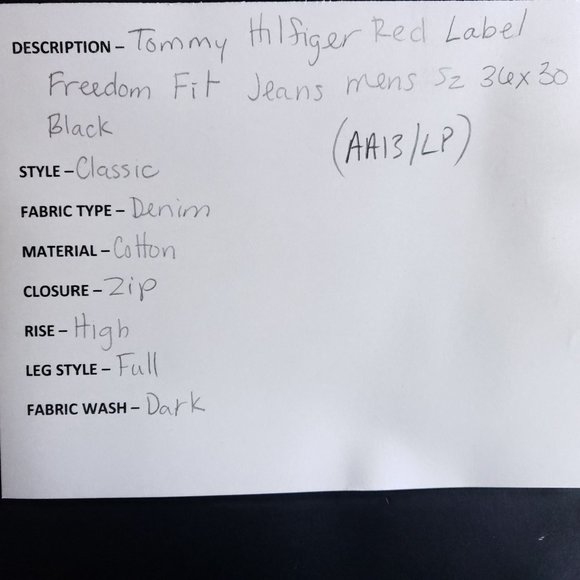 DESCRIPTION – Tommy Hilfiger Red Label
Freedom Fit Jeans mens Sz 36x30
Black
(AA13/LP)
STYLE – Classic
FABRIC TYPE – Denim
MATERIAL – Cotton
CLOSURE – Zip
RISE – High
LEG STYLE – Full
FABRIC WASH – Dark